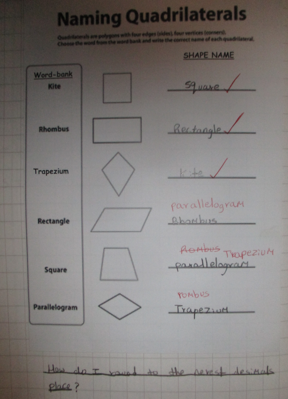 Naming Quadrilaterals
Quadrilaterals are polygons with four edges (sides), four vertices (corners).
Choose the word from the word bank and write the correct name of each quadrilateral.
SHAPE NAME
Word-bank
Kite
Square
Rhombus
Rectangle
Trapezium
Kite
parallelogram
Rectangle
Rhombus
Rhombus Trapezium
Square
parallelogram
rombus
Parallelogram
Trapezium
How do I round to the nerest decimals
place?